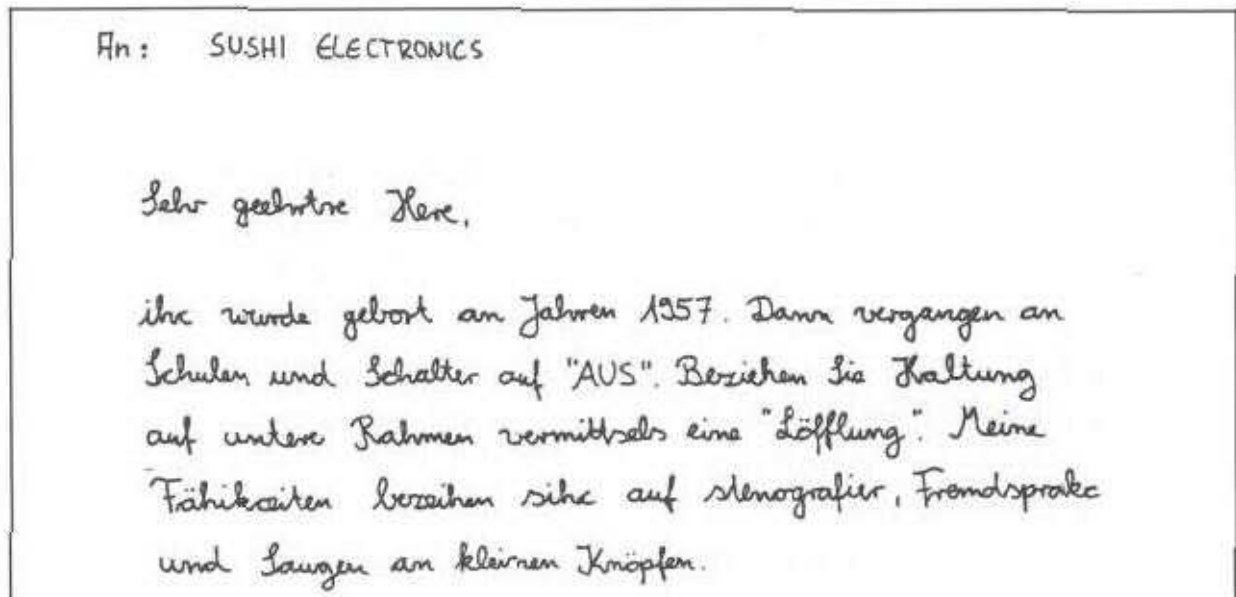 An: SUSHI ELECTRONICS
Sehr geehrtre Here,
ihc wurde gebort an Jahren 1957. Dann vergangen an
Schulen und Schalter auf "AUS". Beziehen Sie Haltung
auf untere Rahmen vermittsels eine "Löfflung". Meine
Fähikeiten bezeihen sihc auf stenografier, Fremdsprake
und Saugen an kleinen Knöpfen.